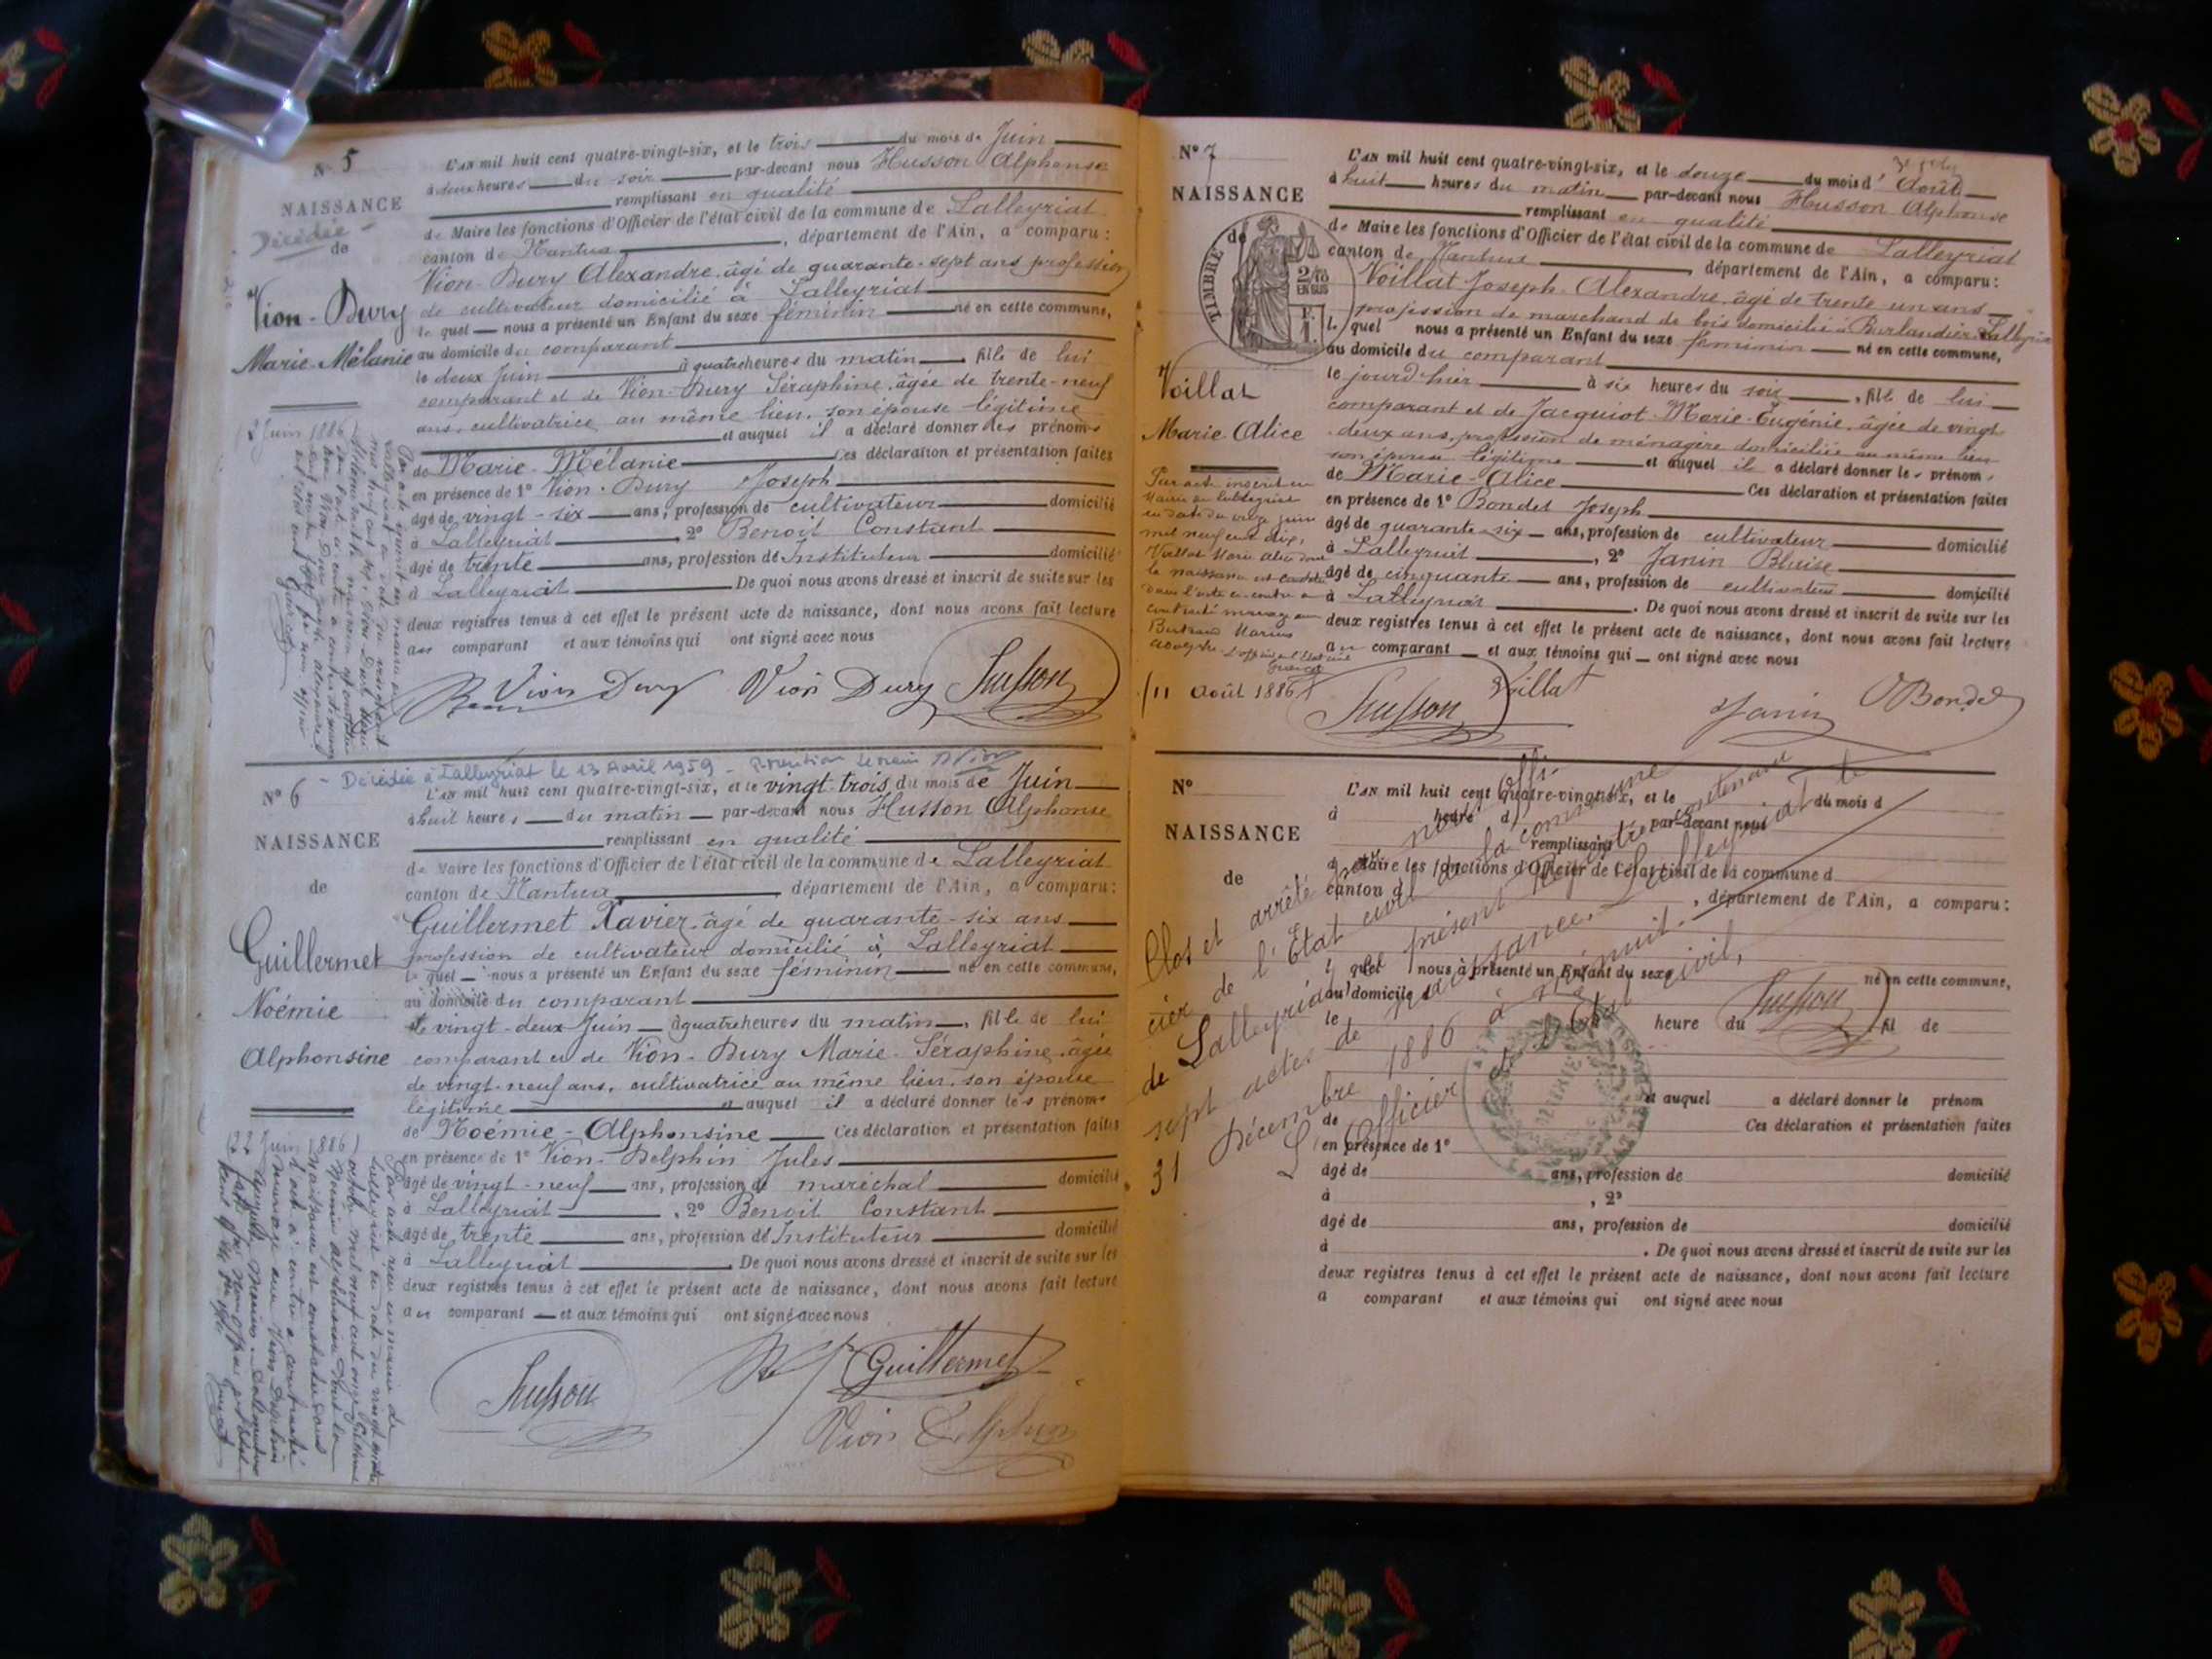 N° 5
NAISSANCE
Décédée
de
Vion-Dury
Marie-Mélanie
L'AN mil huit cent quatre-vingt-six, et le trois du mois de Juin
à deux heures du soir par-devant nous Husson Alphonse
remplissant en qualité
de Maire les fonctions d'Officier de l'état civil de la commune de Lalleyriat
canton de Nantua, département de l'Ain, a comparu:
Vion-Dury Alexandre, âgé de quarante-sept ans profession
de cultivateur domicilié à Lalleyriat
le quel nous a présenté un Enfant du sexe féminin né en cette commune,
au domicile du comparant
le deux Juin à quatre heures du matin, fille de lui
comparant et de Vion-Dury Séraphine, âgée de trente-neuf
ans, cultivatrice au même lieu, son épouse légitime
et auquel il a déclaré donner les prénoms
de Marie-Mélanie Ces déclaration et présentation faites
en présence de 1° Vion-Dury Joseph
âgé de vingt-six ans, profession de cultivateur domicilié
à Lalleyriat, 2° Benoit Constant
âgé de trente ans, profession de Instituteur domicilié
à Lalleyriat. De quoi nous avons dressé et inscrit de suite sur les
deux registres tenus à cet effet le présent acte de naissance, dont nous avons fait lecture
au comparant et aux témoins qui ont signé avec nous
Vion Dury Vion Dury Husson
2 Juin 1886
Décédée à Lalleyriat le 13 Avril 1959
N° 6
NAISSANCE
de
Guillermet
Noémie
Alphonsine
L'AN mil huit cent quatre-vingt-six, et le vingt-trois du mois de Juin
à huit heures du matin par-devant nous Husson Alphonse
remplissant en qualité
de Maire les fonctions d'Officier de l'état civil de la commune de Lalleyriat
canton de Nantua, département de l'Ain, a comparu:
Guillermet Xavier, âgé de quarante-six ans
profession de cultivateur domicilié à Lalleyriat
le quel nous a présenté un Enfant du sexe féminin né en cette commune,
au domicile du comparant
le vingt-deux Juin à quatre heures du matin, fille de lui
comparant et de Vion-Dury Marie-Séraphine, âgée
de vingt-neuf ans, cultivatrice au même lieu, son épouse
légitime et auquel il a déclaré donner les prénoms
de Noémie-Alphonsine Ces déclaration et présentation faites
en présence de 1° Vion-Delphin Jules
âgé de vingt-neuf ans, profession de maréchal domicilié
à Lalleyriat, 2° Benoit Constant
âgé de trente ans, profession de Instituteur domicilié
à Lalleyriat. De quoi nous avons dressé et inscrit de suite sur les
deux registres tenus à cet effet le présent acte de naissance, dont nous avons fait lecture
au comparant et aux témoins qui ont signé avec nous
Husson Guillermet
Vion Delphin
22 Juin 1886
N° 7
NAISSANCE
de
TIMBRE
2/10 EN SUS
Voillat
Marie-Alice
L'AN mil huit cent quatre-vingt-six, et le douze du mois d'Août
à huit heures du matin par-devant nous Husson Alphonse
remplissant en qualité
de Maire les fonctions d'Officier de l'état civil de la commune de Lalleyriat
canton de Nantua, département de l'Ain, a comparu:
Voillat Joseph-Alexandre, âgé de trente un ans
profession de marchand de bois domicilié à Burlandier, Lalleyriat
le quel nous a présenté un Enfant du sexe féminin né en cette commune,
au domicile du comparant
le jourd'hier à six heures du soir, fille de lui
comparant et de Jacquiot Marie-Eugénie, âgée de vingt
deux ans, profession de ménagère domiciliée au même lieu
son épouse légitime et auquel il a déclaré donner les prénoms
de Marie-Alice Ces déclaration et présentation faites
en présence de 1° Bondet Joseph
âgé de quarante-six ans, profession de cultivateur domicilié
à Lalleyriat, 2° Janin Blaise
âgé de cinquante ans, profession de cultivateur domicilié
à Lalleyriat. De quoi nous avons dressé et inscrit de suite sur les
deux registres tenus à cet effet le présent acte de naissance, dont nous avons fait lecture
au comparant et aux témoins qui ont signé avec nous
Par acte inscrit en
Mairie de Lalleyriat
en date du onze juin
mil neuf cent dix,
Voillat Marie Alice dont
la naissance est constatée
dans l'acte ci-contre a
contracté mariage avec
Bertrand Marius
L'officier de l'état civil
11 Août 1886
Husson Voillat Janin Bondet
N°
NAISSANCE
de
L'AN mil huit cent quatre-vingt-six, et le du mois d
à heure d par-devant nous
remplissant
d Maire les fonctions d'Officier de l'état civil de la commune d
canton d, département de l'Ain, a comparu:
l quel nous a présenté un Enfant du sexe né en cette commune,
au domicile d
le heure du fil de
et auquel a déclaré donner le prénom
de Ces déclaration et présentation faites
en présence de 1°
âgé de ans, profession de domicilié
à, 2°
âgé de ans, profession de domicilié
à. De quoi nous avons dressé et inscrit de suite sur les
deux registres tenus à cet effet le présent acte de naissance, dont nous avons fait lecture
a comparant et aux témoins qui ont signé avec nous
Clos et arrêté par nous Offi-
cier de l'État civil de la commune
de Lalleyriat le présent registre contenant
sept actes de naissance. Lalleyriat le
31 Décembre 1886 à minuit.
L'Officier de l'Etat civil,
Husson